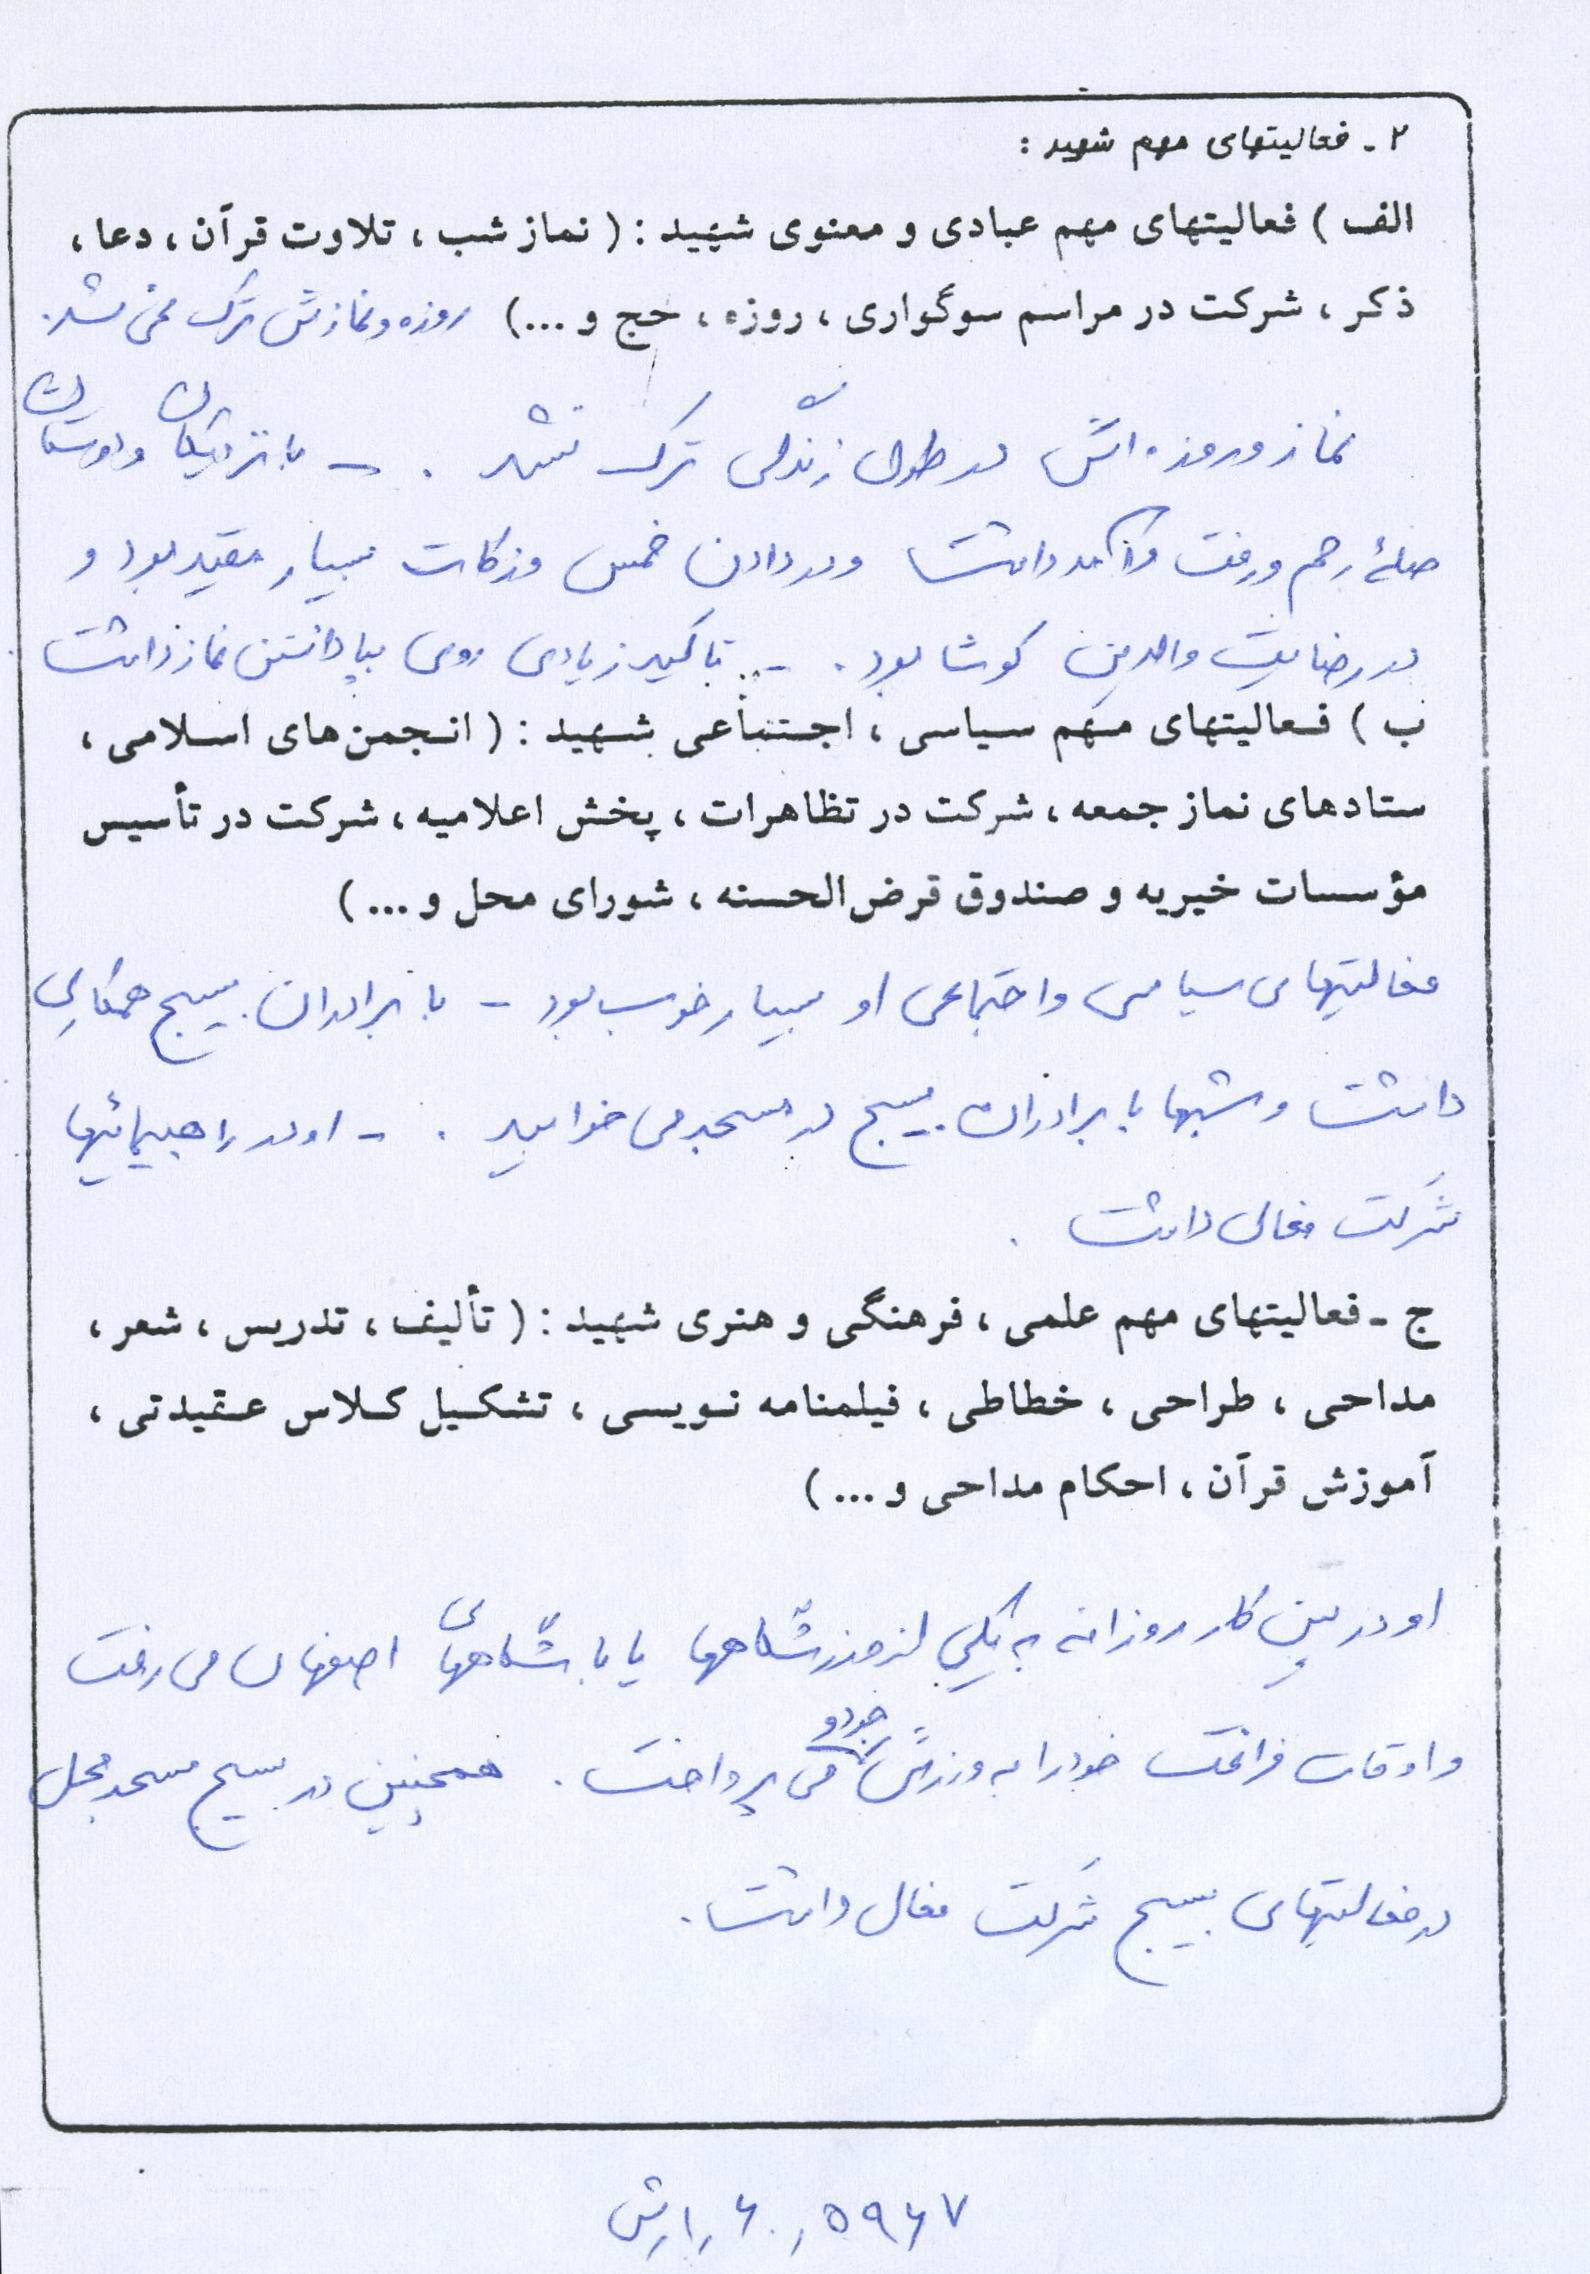 ۲ - فعالیتهای مهم شهید :
الف ) فعالیتهای مهم عبادی و معنوی شهید : ( نماز شب ، تلاوت قرآن ، دعا ،
ذکر ، شرکت در مراسم سوگواری ، روزه ، حج و ...) روزه و نمازش ترک نمی شد.
نماز و روزه اش در طول زندگی اش ترک نشد . - با نزدیکان و دوستان
صلهٔ رحم و رفت و آمد داشت و در دادن خمس و زکات بسیار مقید بود و
در رضایت والدین کوشا بود . - تاکید زیادی روی بپا داشتن نماز داشت .
ب ) فعالیتهای مهم سیاسی ، اجتماعی شهید : ( انجمن‌های اسلامی ،
ستادهای نماز جمعه ، شرکت در تظاهرات ، پخش اعلامیه ، شرکت در تأسیس
مؤسسات خیریه و صندوق قرض‌الحسنه ، شورای محل و ... )
فعالیتهای سیاسی و اجتماعی او بسیار خوب بود - با برادران بسیج همکاری
داشت و شبها با برادران بسیج در مسجد می خوابید . - او در راهپیمائیها
شرکت فعال داشت .
ج - فعالیتهای مهم علمی ، فرهنگی و هنری شهید : ( تألیف ، تدریس ، شعر ،
مداحی ، طراحی ، خطاطی ، فیلمنامه نویسی ، تشکیل کلاس عقیدتی ،
آموزش قرآن ، احکام مداحی و ... )
او در بین کار روزانه به یکی از ورزشگاهها یا باشگاههای اصفهان می رفت
و اوقات فراغت خود را به ورزش جودو می پرداخت . همچنین در بسیج مسجد محل
در فعالیتهای بسیج شرکت فعال داشت .
۵۹۶۷